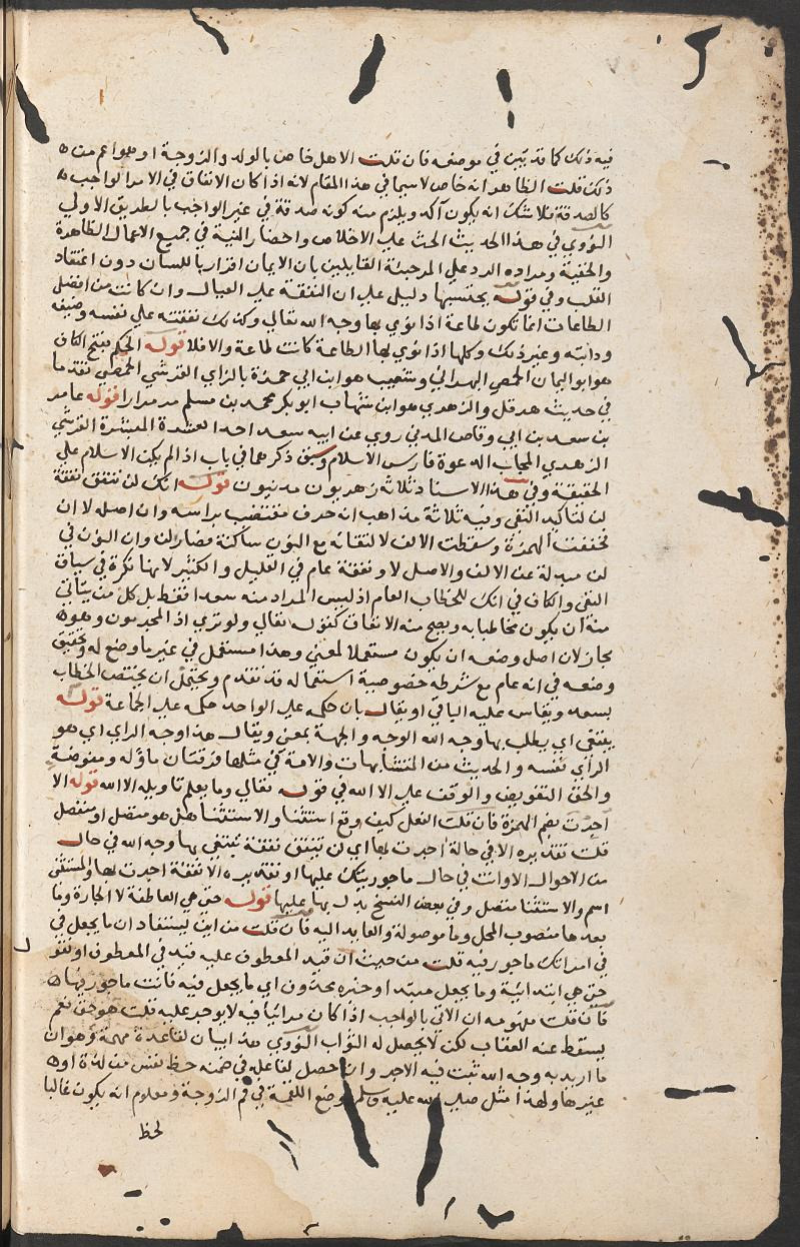 فيه ذلك كما قد تبين في موضعه فان قلت الاهل خاص بالولد والزوجة او هو اعم من
ذلك قلت الظاهر انه خاص لاسيما في هذا المقام لانه اذا كان الانفاق في الامر الواجب
كالصدقة فلا شك انه يكون آكد ويلزم منه كونه صدقة في غير الواجب بالطريق الاولي
النووي في هذا الحديث الحث علي الاخلاص واحضار النية في جميع الاعمال الظاهرة
والخفية ومراده الرد علي المرجئة القايلين بان الايمان اقرار باللسان دون اعتقاد
القلب وفي قوله يحتسبها دليل علي ان النفقة علي العيال وان كانت من افضل
الطاعات انما تكون طاعة اذا نوي بها وجه الله تعالي وكذلك نفقته علي نفسه وضيفه
ودابته وغير ذلك وكلها اذا نوي بها الطاعة كانت طاعة والا فلا قوله الحكم بفتح الكاف
هو ابو اليمان الحمصي البهراني وشعيب هو ابن ابي حمزة بالزاي القرشي الحمصي تقدما
في حديث هرقل والزهري هو ابن شهاب ابو بكر محمد بن مسلم مر مرارا قوله عامر
بن سعد بن ابي وقاص المدني روي عن ابيه سعد احد العشرة المبشرة القرشي
الزهري المجاب الدعوة فارس الاسلام وسبق ذكرهما في باب اذا لم يكن الاسلام علي
الحقيقة وفي هذا الاسناد ثلاثة زهريون مدنيون قوله انك لن تنفق نفقة
لن لتاكيد النفي وفيه ثلاثة مذاهب انه حرف مقتضب براسه وان اصله لا ان
فخففت الهمزة وسقطت الالف لالتقائه مع النون ساكنة فصار لن وان النون في
لن مبدلة عن الالف والاصل لا ونفقة عام في القليل والكثير لانها نكرة في سياق
النفي والكاف في انك للخطاب العام اذ ليس المراد منه سعدا فقط بل كل من يتأتي
منه ان يكون مخاطبا به ويصح منه الانفاق كقوله تعالي ولو تري اذ المجرمون وهو
مجاز لان اصل وضعه ان يكون مستعملا لمعين وهذا مستعمل في غير ما وضع له وتحقيق
وضعه في انه عام مع شرطه خصوصية استعماله قد تقدم ويحتمل ان يختص الخطاب
بسعد ويقاس عليه الباقي او يقال بان حكمه علي الواحد حكمه علي الجماعة قوله
يبتغي اي يطلب بها وجه الله الوجه والجهة بمعني ويقال هذا وجه الراي اي هو
الرأي نفسه والحديث من المتشابهات والامة في مثلها فرقتان مأولة ومفوضة
والحق التفويض والوقف علي الا الله في قوله تعالي وما يعلم تاويله الا الله قوله الا
اجرت بضم الهمزة فان قلت الفعل كيف وقع استثنا والاستثنا هل هو متصل او منفصل
قلت تقديره الا في حالة اجرت بها اي لن تنفق نفقة تبتغي بها وجه الله في حال
من الاحوال الا وانت في حال ماجوريتك عليها او تقديره الا نفقة اجرت بها والمستثني
اسم والاستثنا متصل وفي بعض النسخ بدل بها عليها قوله حتي هي العاطفة لا الجارة وما
بعدها منصوب المحل وما موصولة والعايد اليه فان قلت من اين يستفاد ان ما يجعل في
في امراتك ماجور فيه قلت من حيث ان قيد المعطوف عليه قيد في المعطوف او نقول
حتي هي ابتدائية وما يجعل مبتدا وخبره محذوف اي ما يجعل فيه فانت ماجور فيها
فان قلت مفهومه ان الآتي بالواجب اذا كان مرائيا فيه لا يوجر عليه قلت هو حق نعم
يسقط عنه العقاب لكن لا يحصل له الثواب النووي هذا بيان لقاعدة مهمة وهو ان
ما اريد به وجه الله ثبت فيه الاجر وان حصل لفاعله في ضمنه حظ نفس من لذة او
غيرها ولهذا مثل صلي الله عليه وسلم وضع اللقمة في فم الزوجة ومعلوم انه يكون غالبا
لحظ